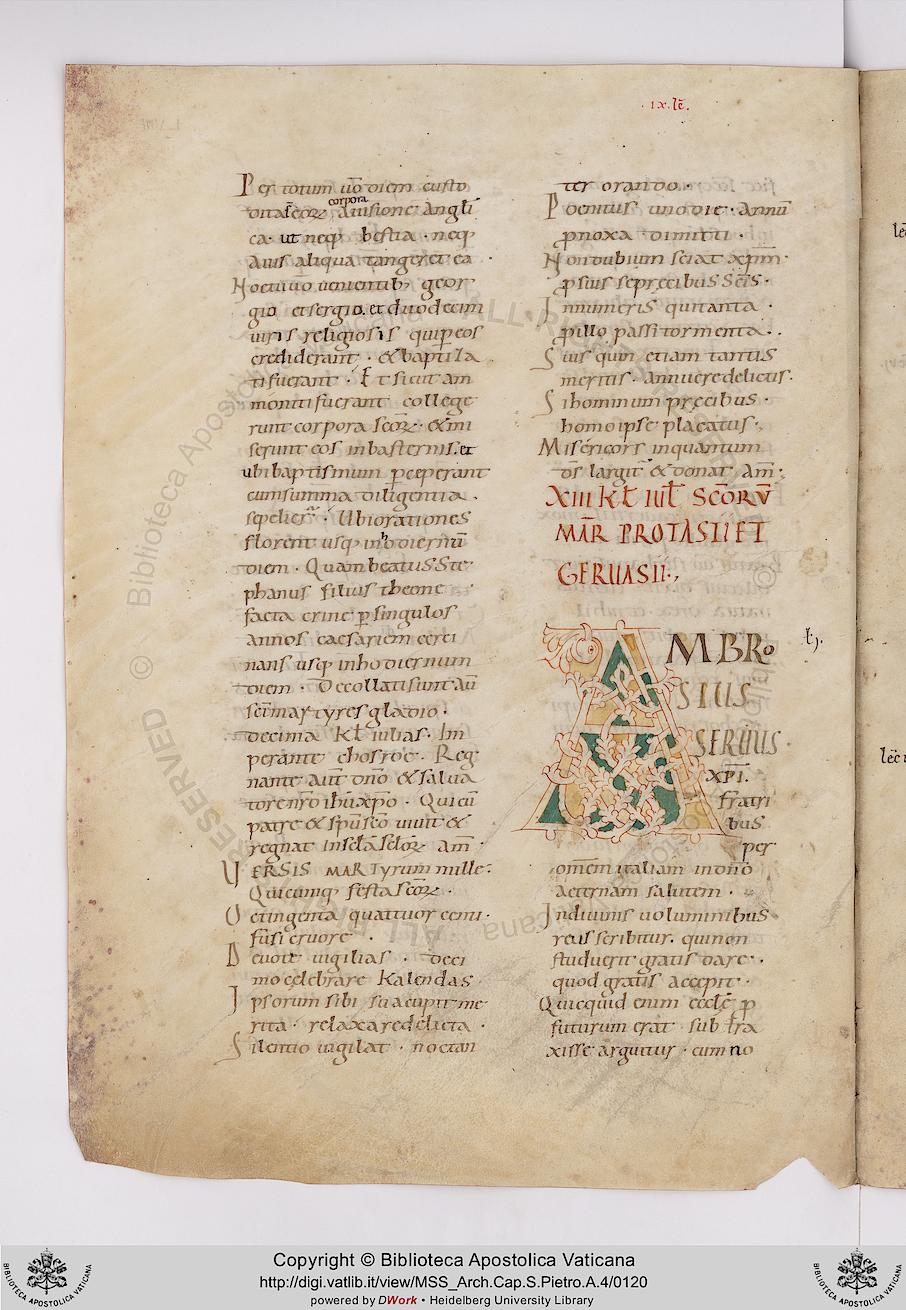 · ix. lc̄.
Per totum uo diem custo
dita sēoꝝ corpora a uisione angeli
ca · ut neq; bestia · neq;
auis aliqua tangeret ea ·
Noctu uo uenientib; geor
gio et sergio. et duodecim
uiris religiosis qui p eos
crediderant · & baptiza
ti fuerant · Et sicut am
moniti fuerant college
runt corpora sc̄oꝝ · & mi
serunt eos in basternis. et
ubi baptismum pceperant
cum summa diligentia ·
sepelier · Ubi orationes
florent usq; in hodiernū
diem · Quam beatus Ste
phanus filius theone
facta crine p singulos
annos caesariem eerci
nans usq; in hodiernum
diem · Decollati sunt aū
sc̄i martyres gladio ·
decima kƚ iulias · Im
perante chosroe · Reg
nante aut dno & salua
tore nr̄o ihū xp̄o · Qui cū
patre & spū sc̄o uiuit &
regnat in sc̄la sc̄loꝝ am̄ ·
VERSIS MARTyrum mille ·
Quicumq; festa sc̄oꝝ ·
Octingenta quattuor centu ·
fusi cruore ·
Deuote uigilias · deci
mo celebrare kalendas
Ipsorum sibi sua cupit me
rita · relaxare delicta ·
Silentio uigilat · noctan
ter orando ·
Poenitus uno die · annū
p noxa dimitti ·
Non dubium sciat xp̄m ·
p suis se precibus sc̄is ·
Innumeris qui tanta ·
p illo passi tormenta ·
Suis quin etiam tantis
meritis · annuere delictis ·
Si hominum precibus ·
homo ipse placatus ·
Misericors in quantum
d̄s largit & donat am̄ ·
XIII Kƚ IUƚ SC̄ORV̄
MAR̄ PROTASII ET
GERUASII ·,
AMBRO
SIUS
SERUUS ·
XP̄I.
fratri
bus
per
omēm italiam in dn̄o
aeternam salutem ·
In diuinis uoluminibus
reus scribitur. qui non
studuerit gratis dare ·
quod gratis accepit ·
Quicquid enim eccle p
futurum erat · sub tra
xisse arguitur · cum no
lc̄
lec̄ i
Copyright © Biblioteca Apostolica Vaticana
http://digi.vatlib.it/view/MSS_Arch.Cap.S.Pietro.A.4/0120
powered by DWork • Heidelberg University Library
BIBLIOTECA APOSTOLICA VATICANA
BIBLIOTECA APOSTOLICA VATICANA